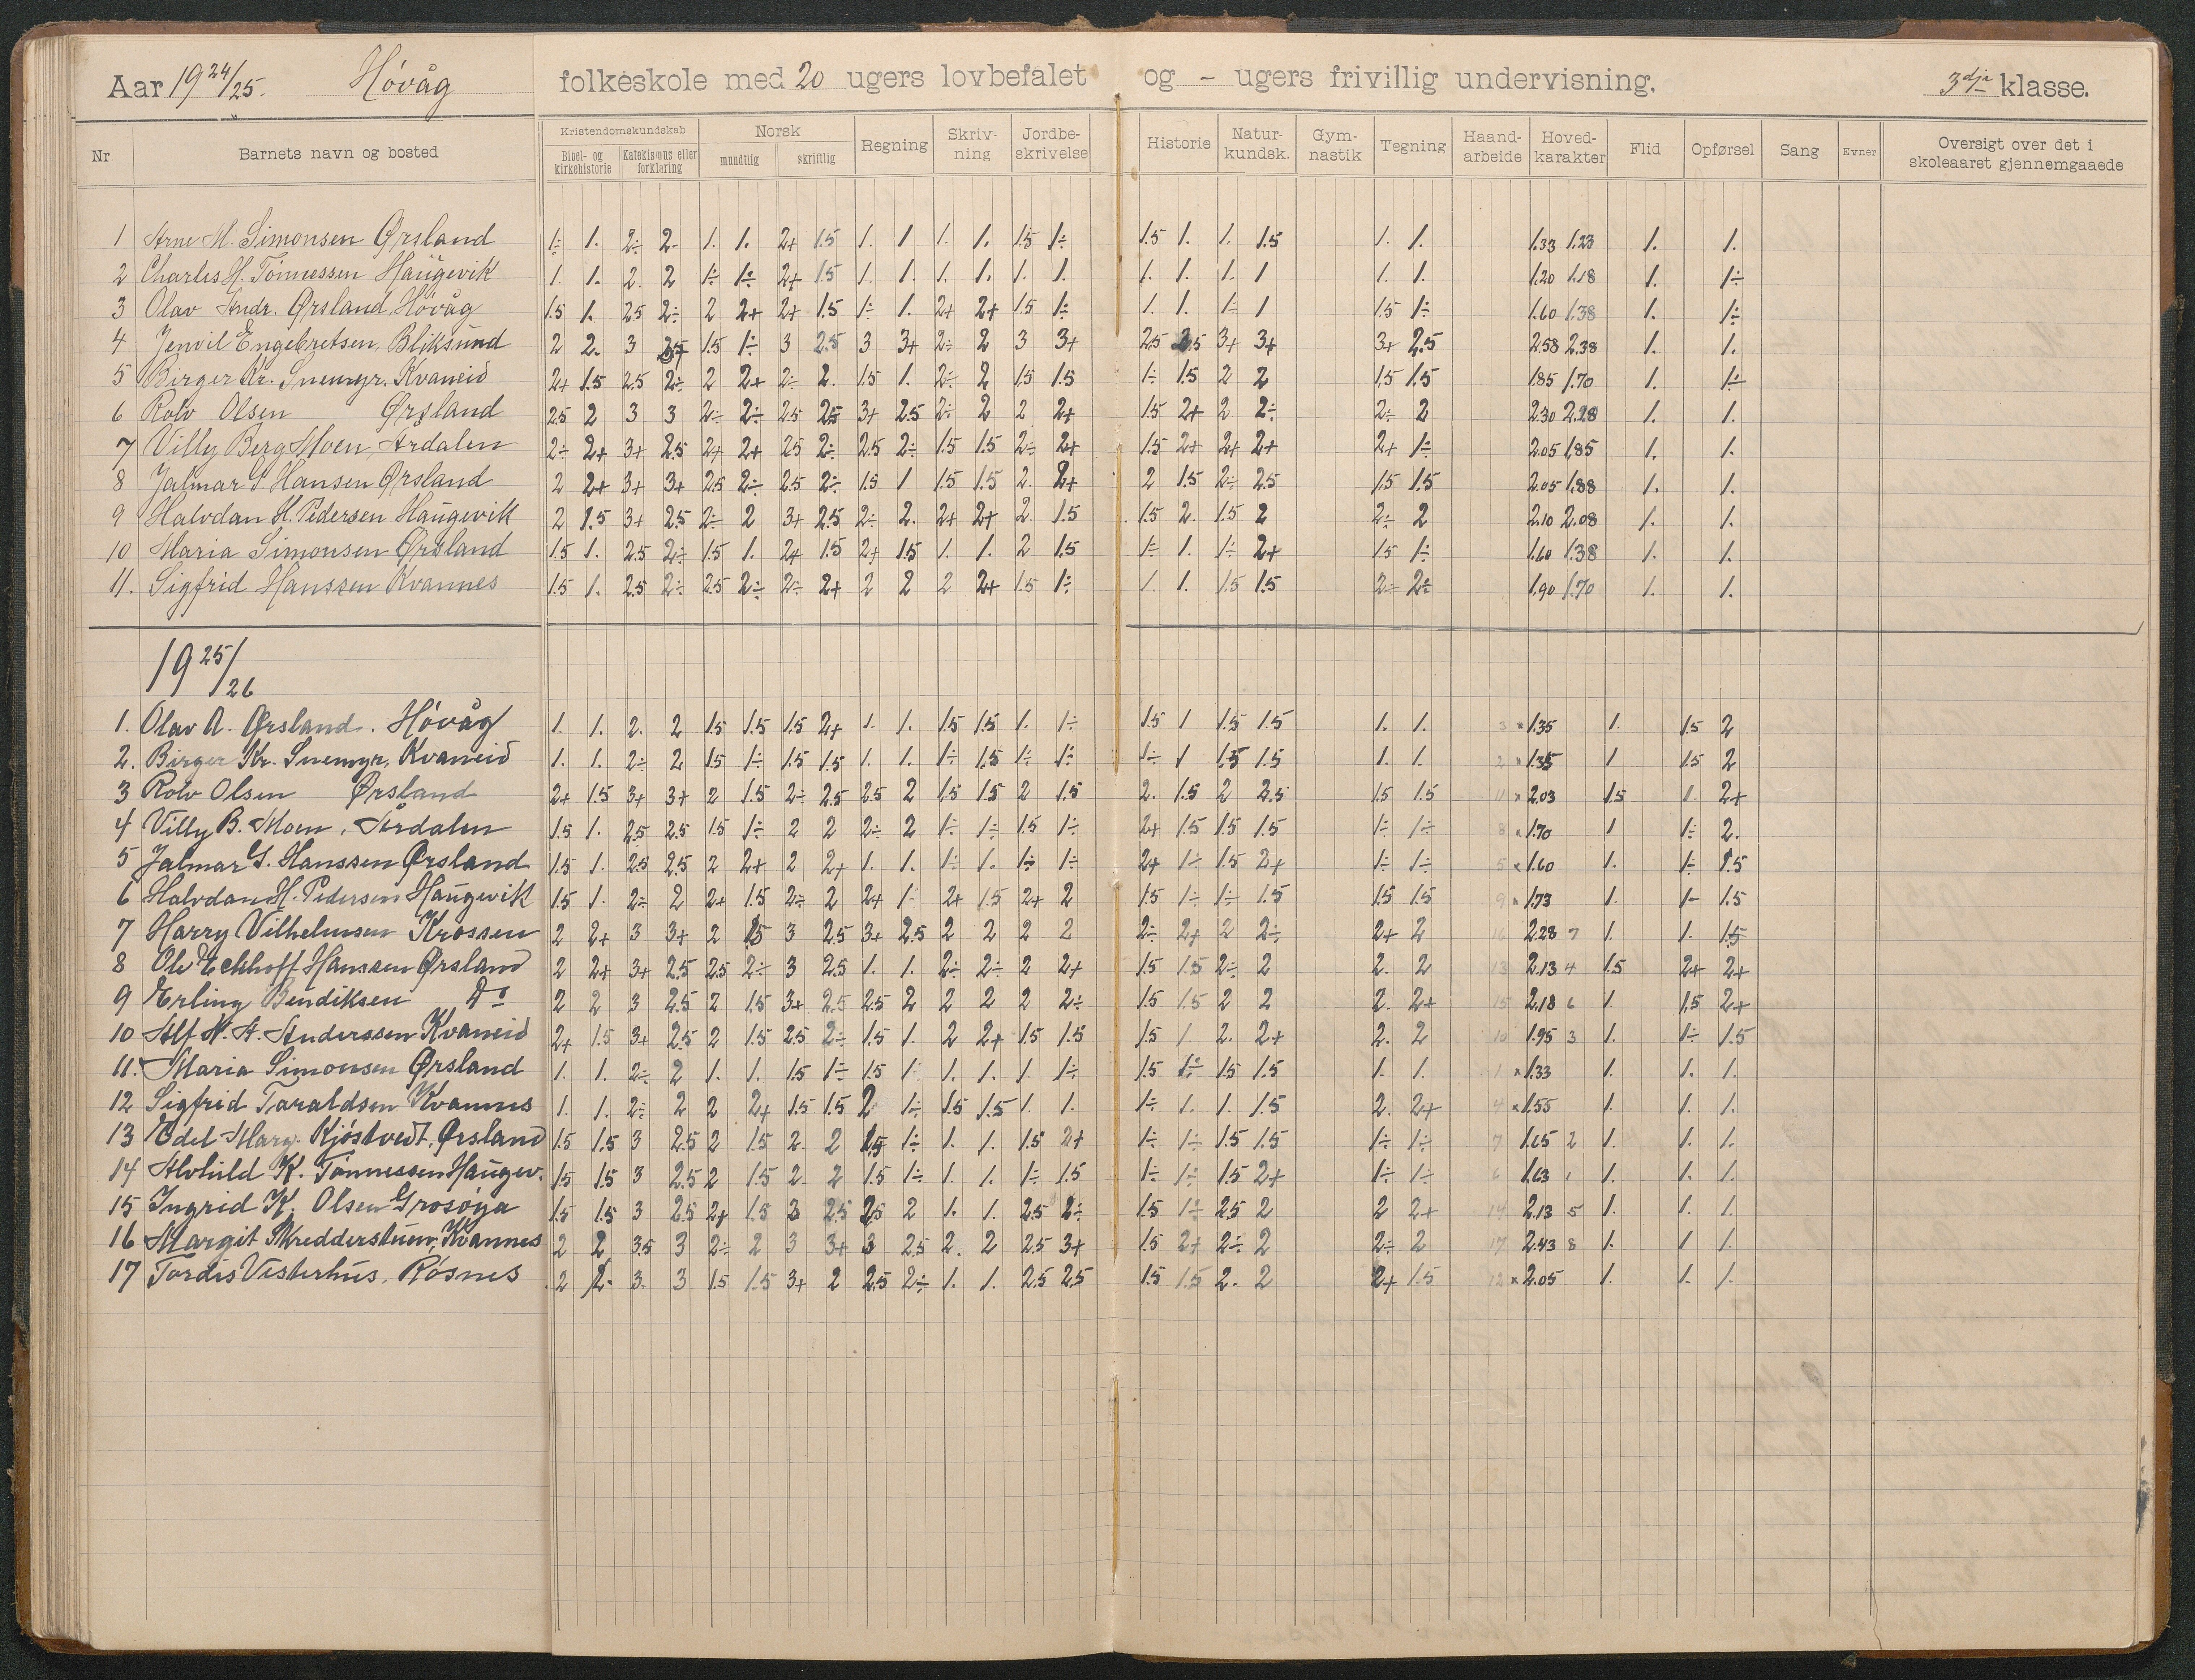 Aar 1924/25. Høvåg folkeskole med 20 ugers lovbefalet og - ugers frivillig undervisning. 3dje klasse.
Nr. Barnets navn og bosted Kristendomskundskab Norsk Regning Skriv-ning Jordbe-skrivelse Historie Natur-kundsk. Gym-nastik Tegning Haand-arbeide Hoved-karakter Flid Opførsel Sang Evner Oversigt over det i skoleaaret gjennemgaaede
Bibel- og kirkehistorie Katekismus eller forklaring mundtlig skriftlig
1 Arne M. Simonsen Ørsland 1÷ 1. 2÷ 2- 1. 1. 2+ 1.5 1. 1 1. 1. 1.5 1÷ 1.5 1. 1. 1.5 1. 1. 1.33 1.23 1. 1.
2 Charles H. Tönnessen Haugevik 1. 1. 2. 2 1÷ 1÷ 2+ 1.5 1. 1. 1. 1. 1. 1. 1. 1. 1. 1 1. 1. 1.20 1.18 1. 1÷
3 Olav Andr. Ørsland, Høvåg 1.5 1. 2.5 2÷ 2 2+ 2+ 1.5 1÷ 1. 2+ 2+ 1.5 1÷ 1. 1. 1÷ 1 1.5 1÷ 1.60 1.38 1. 1÷
4 Jenvil Engebretsen, Bliksund 2 2. 3 1.5 1÷ 3 2.5 3 3+ 2÷ 2 3 3+ 2.5 2.5 3+ 3+ 3+ 2.5 2.58 2.38 1. 1.
5 Birger Kr. Snemyr. Kvaneid 2+ 1.5 2.5 2÷ 2 2+ 2÷ 2. 1.5 1. 2÷ 2 1.5 1.5 1÷ 1.5 2 2 1.5 1.5 1.85 1.70 1. 1÷
6 Rolv Olsen Ørsland 2.5 2 3 3 2÷ 2÷ 2.5 2.5 3+ 2.5 2÷ 2 2 2+ 1.5 2+ 2 2÷ 2÷ 2 2.30 2.28 1. 1.
7 Villy Berg Moen, Årdalen 2÷ 2+ 3+ 2.5 2+ 2+ 2.5 2÷ 2.5 2÷ 1.5 1.5 2÷ 2+ 1.5 2+ 2+ 2+ 2+ 1÷ 2.05 1.85 1. 1.
8 Jalmar S. Hansen Ørsland 2 2+ 3+ 3+ 2.5 2÷ 2.5 2÷ 1.5 1 1.5 1.5 2. 2+ 2 1.5 2÷ 2.5 1.5 1.5 2.05 1.88 1. 1.
9 Halvdan H. Pedersen Haugevik 2 1.5 3+ 2.5 2÷ 2 3+ 2.5 2÷ 2. 2+ 2+ 2. 1.5 1.5 2. 1.5 2 2÷ 2 2.10 2.08 1. 1.
10 Maria Simonsen Ørsland 1.5 1. 2.5 2÷ 1.5 1. 2+ 1.5 2+ 1.5 1. 1. 2 1.5 1÷ 1. 1÷ 2+ 1.5 1÷ 1.60 1.38 1. 1.
11. Sigfrid Hanssen Kvannes 1.5 1. 2.5 2÷ 2.5 2÷ 2÷ 2+ 2 2 2 2+ 1.5 1÷ 1. 1. 1.5 1.5 2÷ 2÷ 1.90 1.70 1. 1.
1925/26
1. Olav A. Ørsland. Høvåg 1. 1. 2. 2 1.5 1.5 1.5 2+ 1. 1. 1.5 1.5 1. 1÷ 1.5 1 1.5 1.5 1. 1. 3 × 1.35 1. 1.5 2
2. Birger Kr. Snemyr, Kvaneid 1. 1. 2÷ 2 1.5 1÷ 1.5 1.5 1. 1. 1÷ 1.5 1÷ 1÷ 1÷ 1 1.5 1.5 1. 1. 2 × 1.35 1 1.5 2
3 Rolv Olsen Ørsland 2+ 1.5 3+ 3+ 2 1.5 2÷ 2.5 2.5 2 1.5 1.5 2 1.5 2. 1.5 2 2.5 1.5 1.5 11 × 2.03 1.5 1. 2+
4 Villy B. Moen, Årdalen 1.5 1. 2.5 2.5 1.5 1÷ 2 2 2÷ 2 1÷ 1÷ 1.5 1÷ 2+ 1.5 1.5 1.5 1÷ 1÷ 8 × 1.70 1 1÷ 2.
5 Jalmar S. Hanssen Ørsland 1.5 1. 2.5 2.5 2 2+ 2 2+ 1. 1. 1÷ 1. 1÷ 1÷ 2+ 1÷ 1.5 2+ 1÷ 1÷ 5 × 1.60 1. 1÷ 1.5
6 Halvdan H. Pedersen Haugevik 1.5 1. 2÷ 2 2+ 1.5 2÷ 2 2+ 1. 2+ 1.5 2+ 2 1.5 1÷ 1÷ 1.5 1.5 1.5 9 × 1.73 1. 1- 1.5
7 Harry Vilhelmsen Krossen 2 2+ 3 3+ 2 1.5 3 2.5 3+ 2.5 2 2 2 2 2÷ 2+ 2 2÷ 2+ 2 16 2.28 7 1. 1. 1.5
8 Ole Eckhoff Hanssen Ørsland 2 2+ 3+ 2.5 2.5 2÷ 3 2.5 1. 1. 2÷ 2÷ 2 2+ 1.5 1.5 2÷ 2 2. 2 13 2.13 4 1.5 2+ 2+
9 Erling Bendiksen Do 2 2 3 2.5 2 1.5 3+ 2.5 2.5 2 2 2 2 2÷ 1.5 1.5 2 2 2. 2+ 15 2.18 6 1. 1.5 2+
10 Alf N. A. Anderssen Kvaneid 2+ 1.5 3+ 2.5 2 1.5 2.5 2÷ 1.5 1. 2 2+ 1.5 1.5 1.5 1. 2. 2+ 2. 2 10 1.95 3 1. 1÷ 1.5
11. Maria Simonsen Ørsland 1. 1. 2÷ 2 1. 1. 1.5 1÷ 1.5 1. 1. 1. 1. 1÷ 1.5 1÷ 1.5 1.5 1. 1. 1 × 1.33 1. 1. 1.
12 Sigfrid Taraldsen Kvannes 1. 1. 2÷ 2 2 2+ 1.5 1.5 2 1÷ 1.5 1.5 1. 1. 1÷ 1. 1. 1.5 2. 2+ 4 × 1.55 1. 1. 1.
13 Edel Marg. Kjöstvedt, Ørsland 1.5 1.5 3 2.5 2 1.5 2. 2 1.5 1÷ 1. 1. 1.5 2+ 1÷ 1÷ 1.5 1.5 1÷ 1÷ 7 1.65 2 1. 1. 1.
14 Alvhild K. Tönnessen Haugev. 1.5 1.5 3 2.5 2 1.5 2. 2 1.5 1÷ 1. 1. 1÷ 1.5 1÷ 1÷ 1.5 2+ 1÷ 1÷ 6 1.63 1 1. 1. 1.
15 Ingrid K. Olsen Grosøya 1.5 1.5 3 2.5 2+ 1.5 3 2.5 2.5 2 1. 1. 2.5 2÷ 1.5 1÷ 2.5 2 2 2+ 14 2.13 5 1. 1. 1.
16 Margit Skredderstuen, Kvannes 2 2 3.5 3 2÷ 2 3 3+ 3 2.5 2. 2 2.5 3+ 1.5 2+ 2÷ 2 2÷ 2 17 2.43 8 1. 1 1.
17 Tordis Vesterhus, Røsnes 2 2- 3. 3 1.5 1.5 3+ 2 2.5 2÷ 1. 1. 2.5 2.5 1.5 1.5 2. 2 2+ 1.5 12 × 2.05 1. 1. 1.